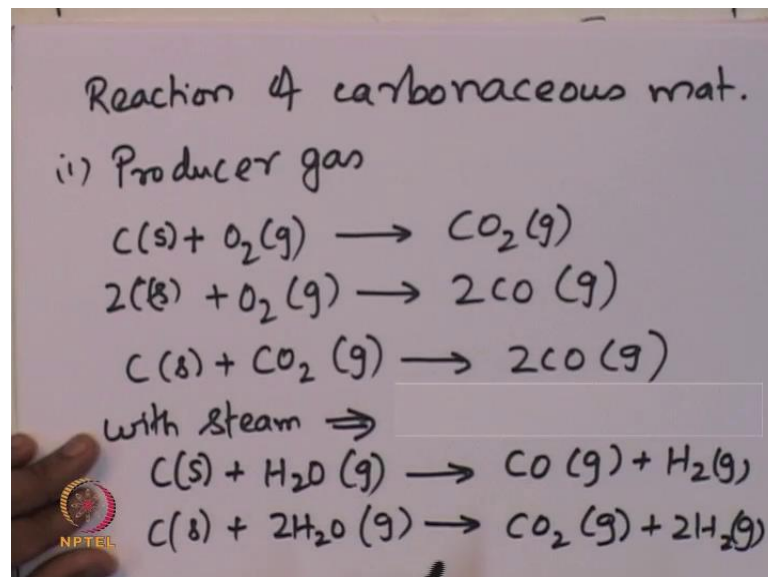 Reaction of carbonaceous mat.
(i) Producer gas
C(s) + O₂(g) ⟶ CO₂(g)
2C(s) + O₂(g) ⟶ 2CO(g)
C(s) + CO₂(g) ⟶ 2CO(g)
with steam ⇒
C(s) + H₂O(g) ⟶ CO(g) + H₂(g)
C(s) + 2H₂O(g) ⟶ CO₂(g) + 2H₂(g)
NPTEL